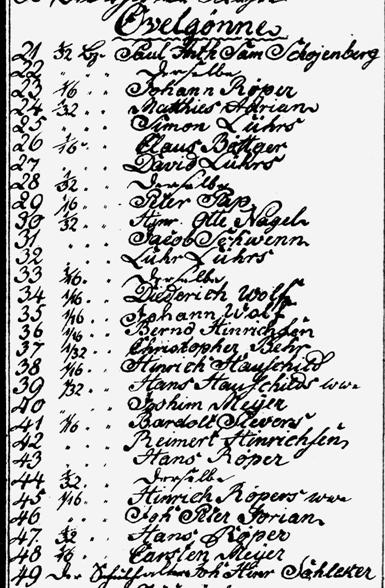 Övelgönne
21 1/32 Hz. Paul Hrch Sam Schojenberg
22 " " Derselbe
23 1/16 " Johann Röper
24 1/32 " Matthies Adrian
25 " " Simon Lührs
26 1/16 " Claus Böttger
27 " " David Lührs
28 1/32 " Derselbe
29 1/16 " Peter Pap
30 1/32 " Hinr. Otte Nagel
31 " " Jacob Schwenn
32 " " Lühr Lührs
33 1/16 " Derselbe
34 1/16 " Diederich Wolf
35 1/16 " Johann Wolf
36 1/16 " Bernd Hinrichsen
37 1/32 " Christopher Behr
38 1/16 " Hinrich Hauschild
39 1/32 " Hans Hauschilds wwe
40 " " Jochim Meyer
41 1/16 " Bardolt Stevens
42 " " Reimert Hinrichsen
43 " " Hans Röper
44 1/32 " Derselbe
45 1/16 " Hinrich Röpers wwe
46 " " Joh Peter Dorian
47 1/32 " Hans Röper
48 1/16 " Carsten Meyer
49 Der Joh Hinr Schleker